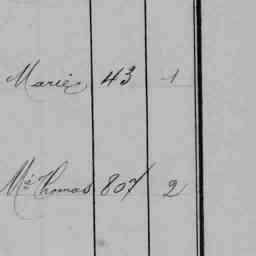 Marie 43 1
Mé Thomas 807 2